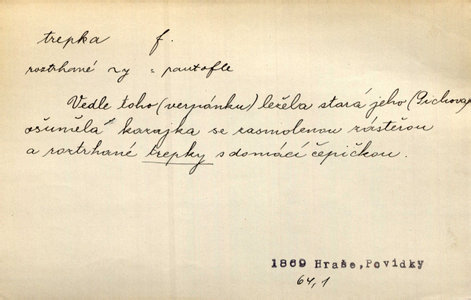 trepka f.
roztrhané ~y = pantofle
Vedle toho (verpánku) ležela stará jeho (Prchova)
ošumělá kazajka se zasmolenou zástěrou
a roztrhané trepky s domácí čepičkou.
1869 Hraše, Povídky
64,1